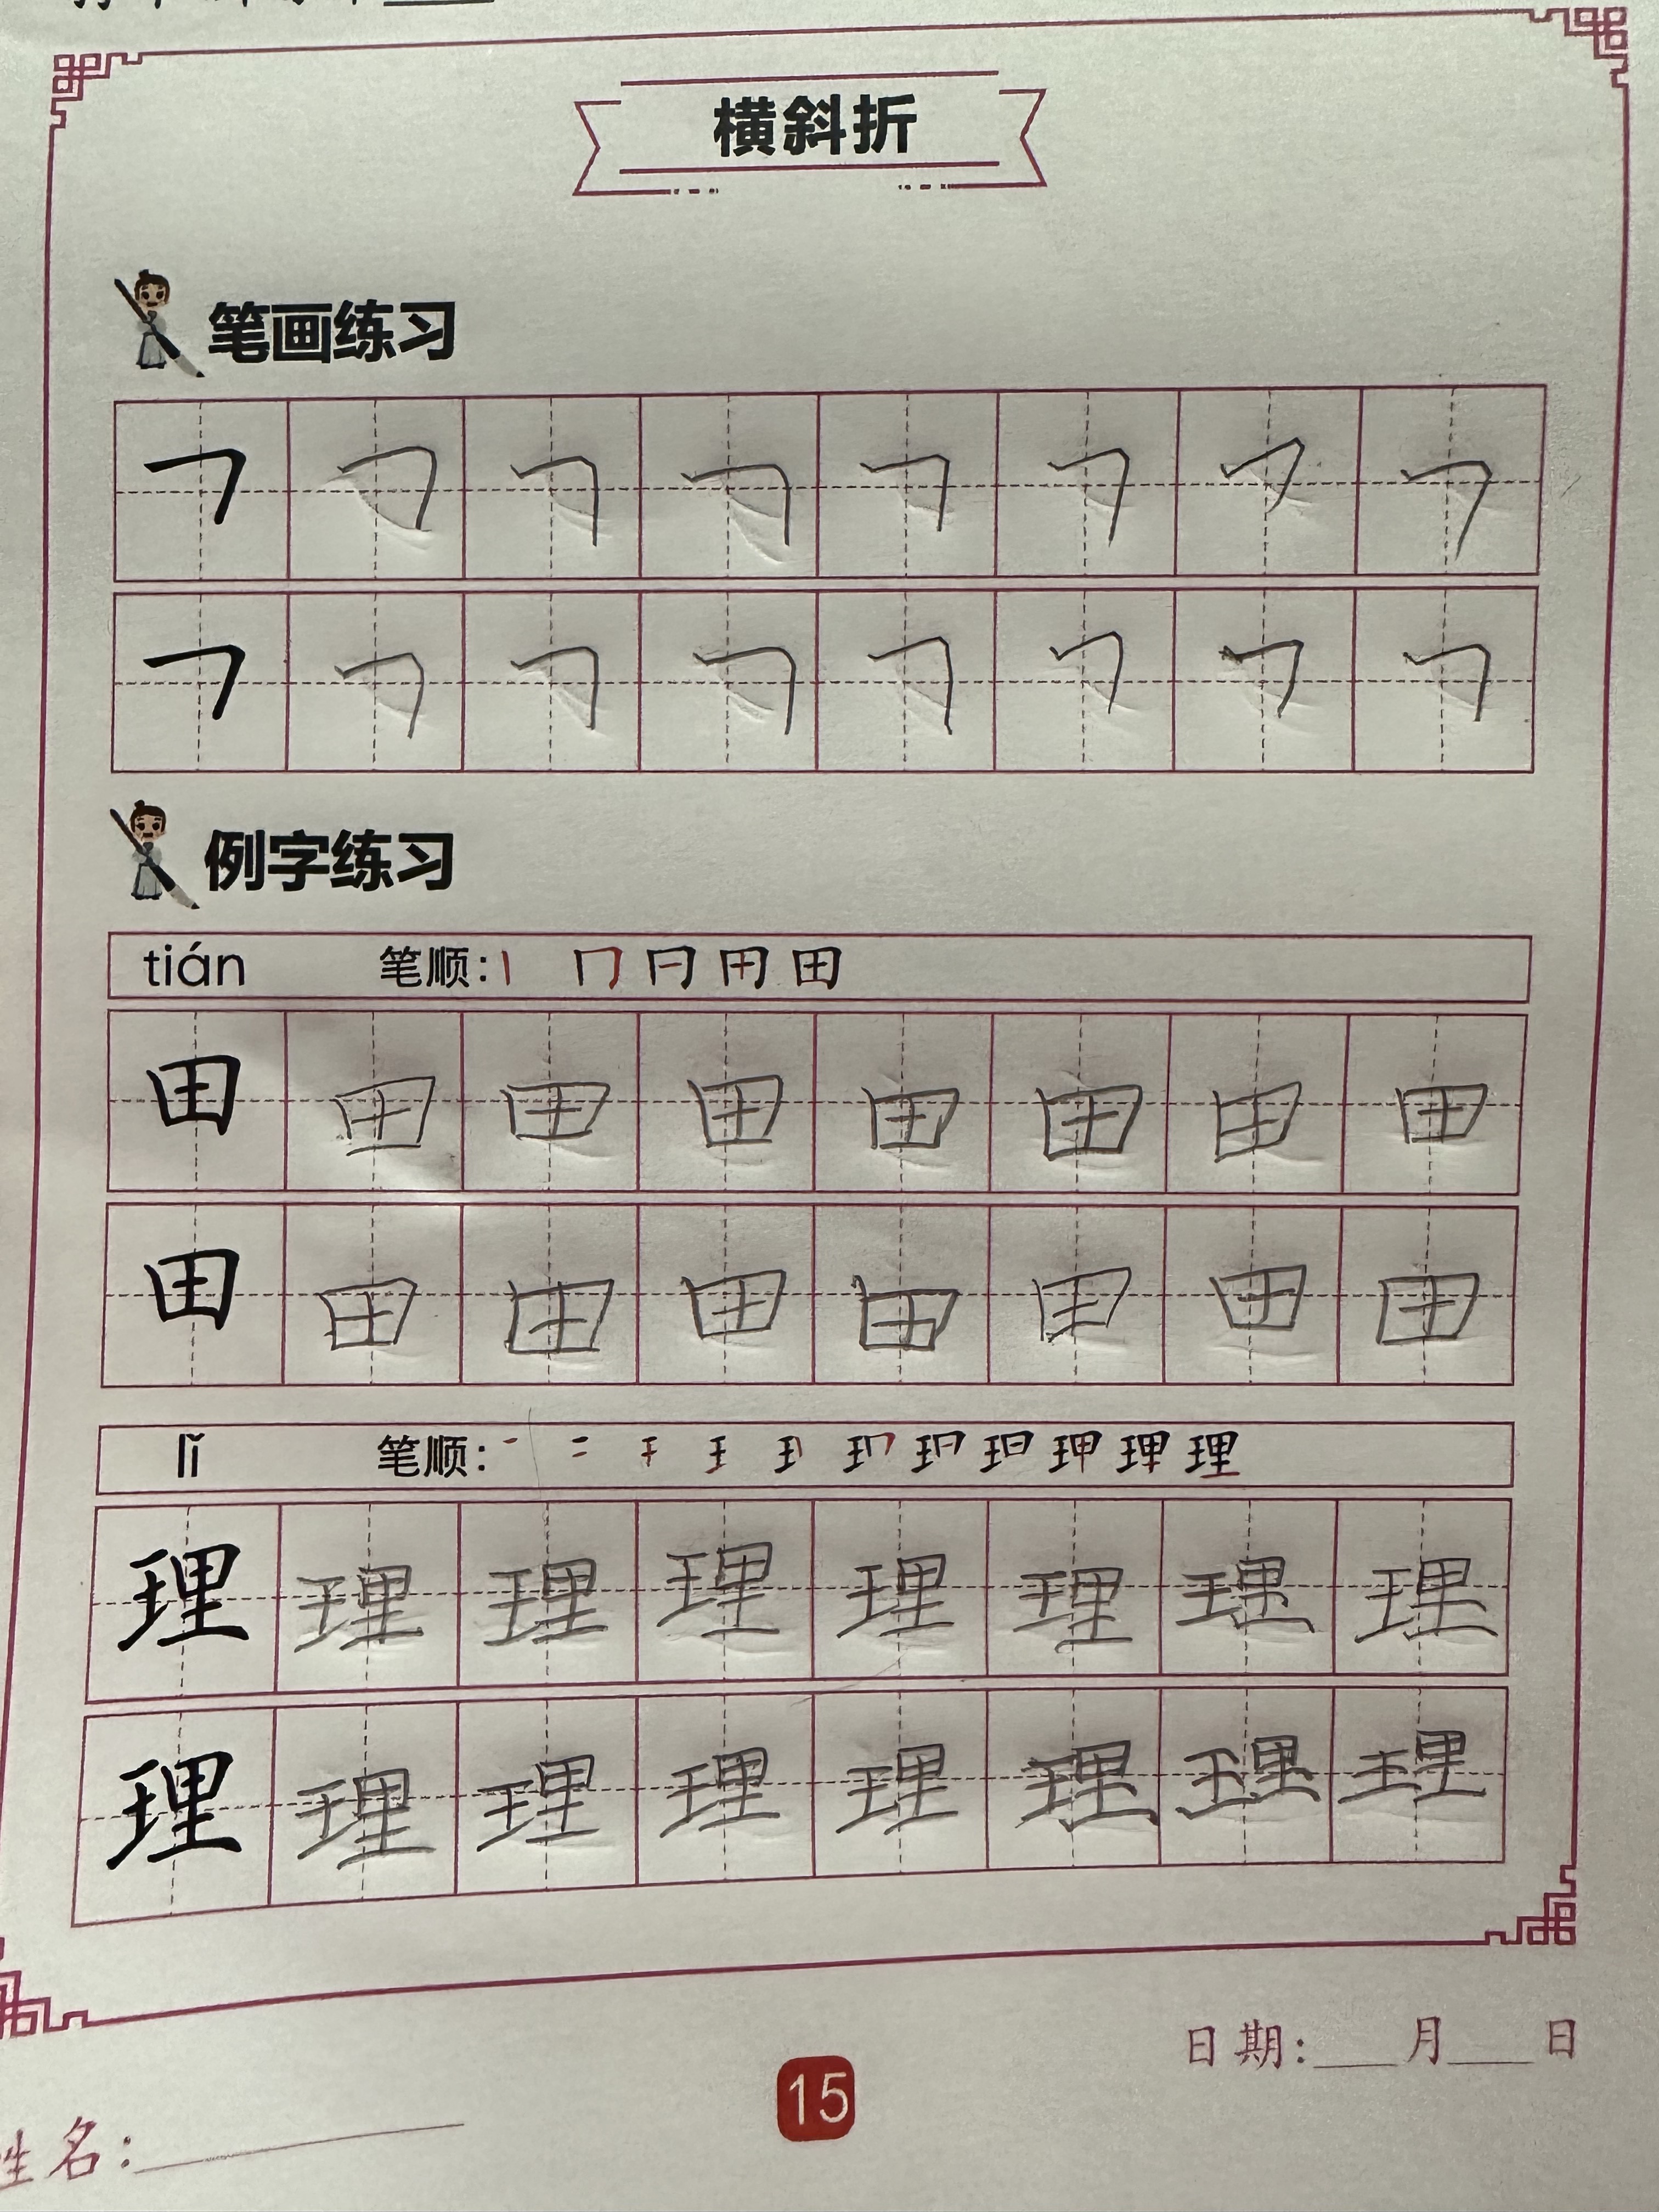 横斜折
笔画练习
㇕ ㇕ ㇕ ㇕ ㇕ ㇕ ㇕ ㇕
㇕ ㇕ ㇕ ㇕ ㇕ ㇕ ㇕ ㇕
例字练习
tián 笔顺:
田 田 田 田 田 田 田 田
田 田 田 田 田 田 田 田
lǐ 笔顺:
理 理 理 理 理 理 理 理
理 理 理 理 理 理 理 理
日期:___月___日
15
姓名: